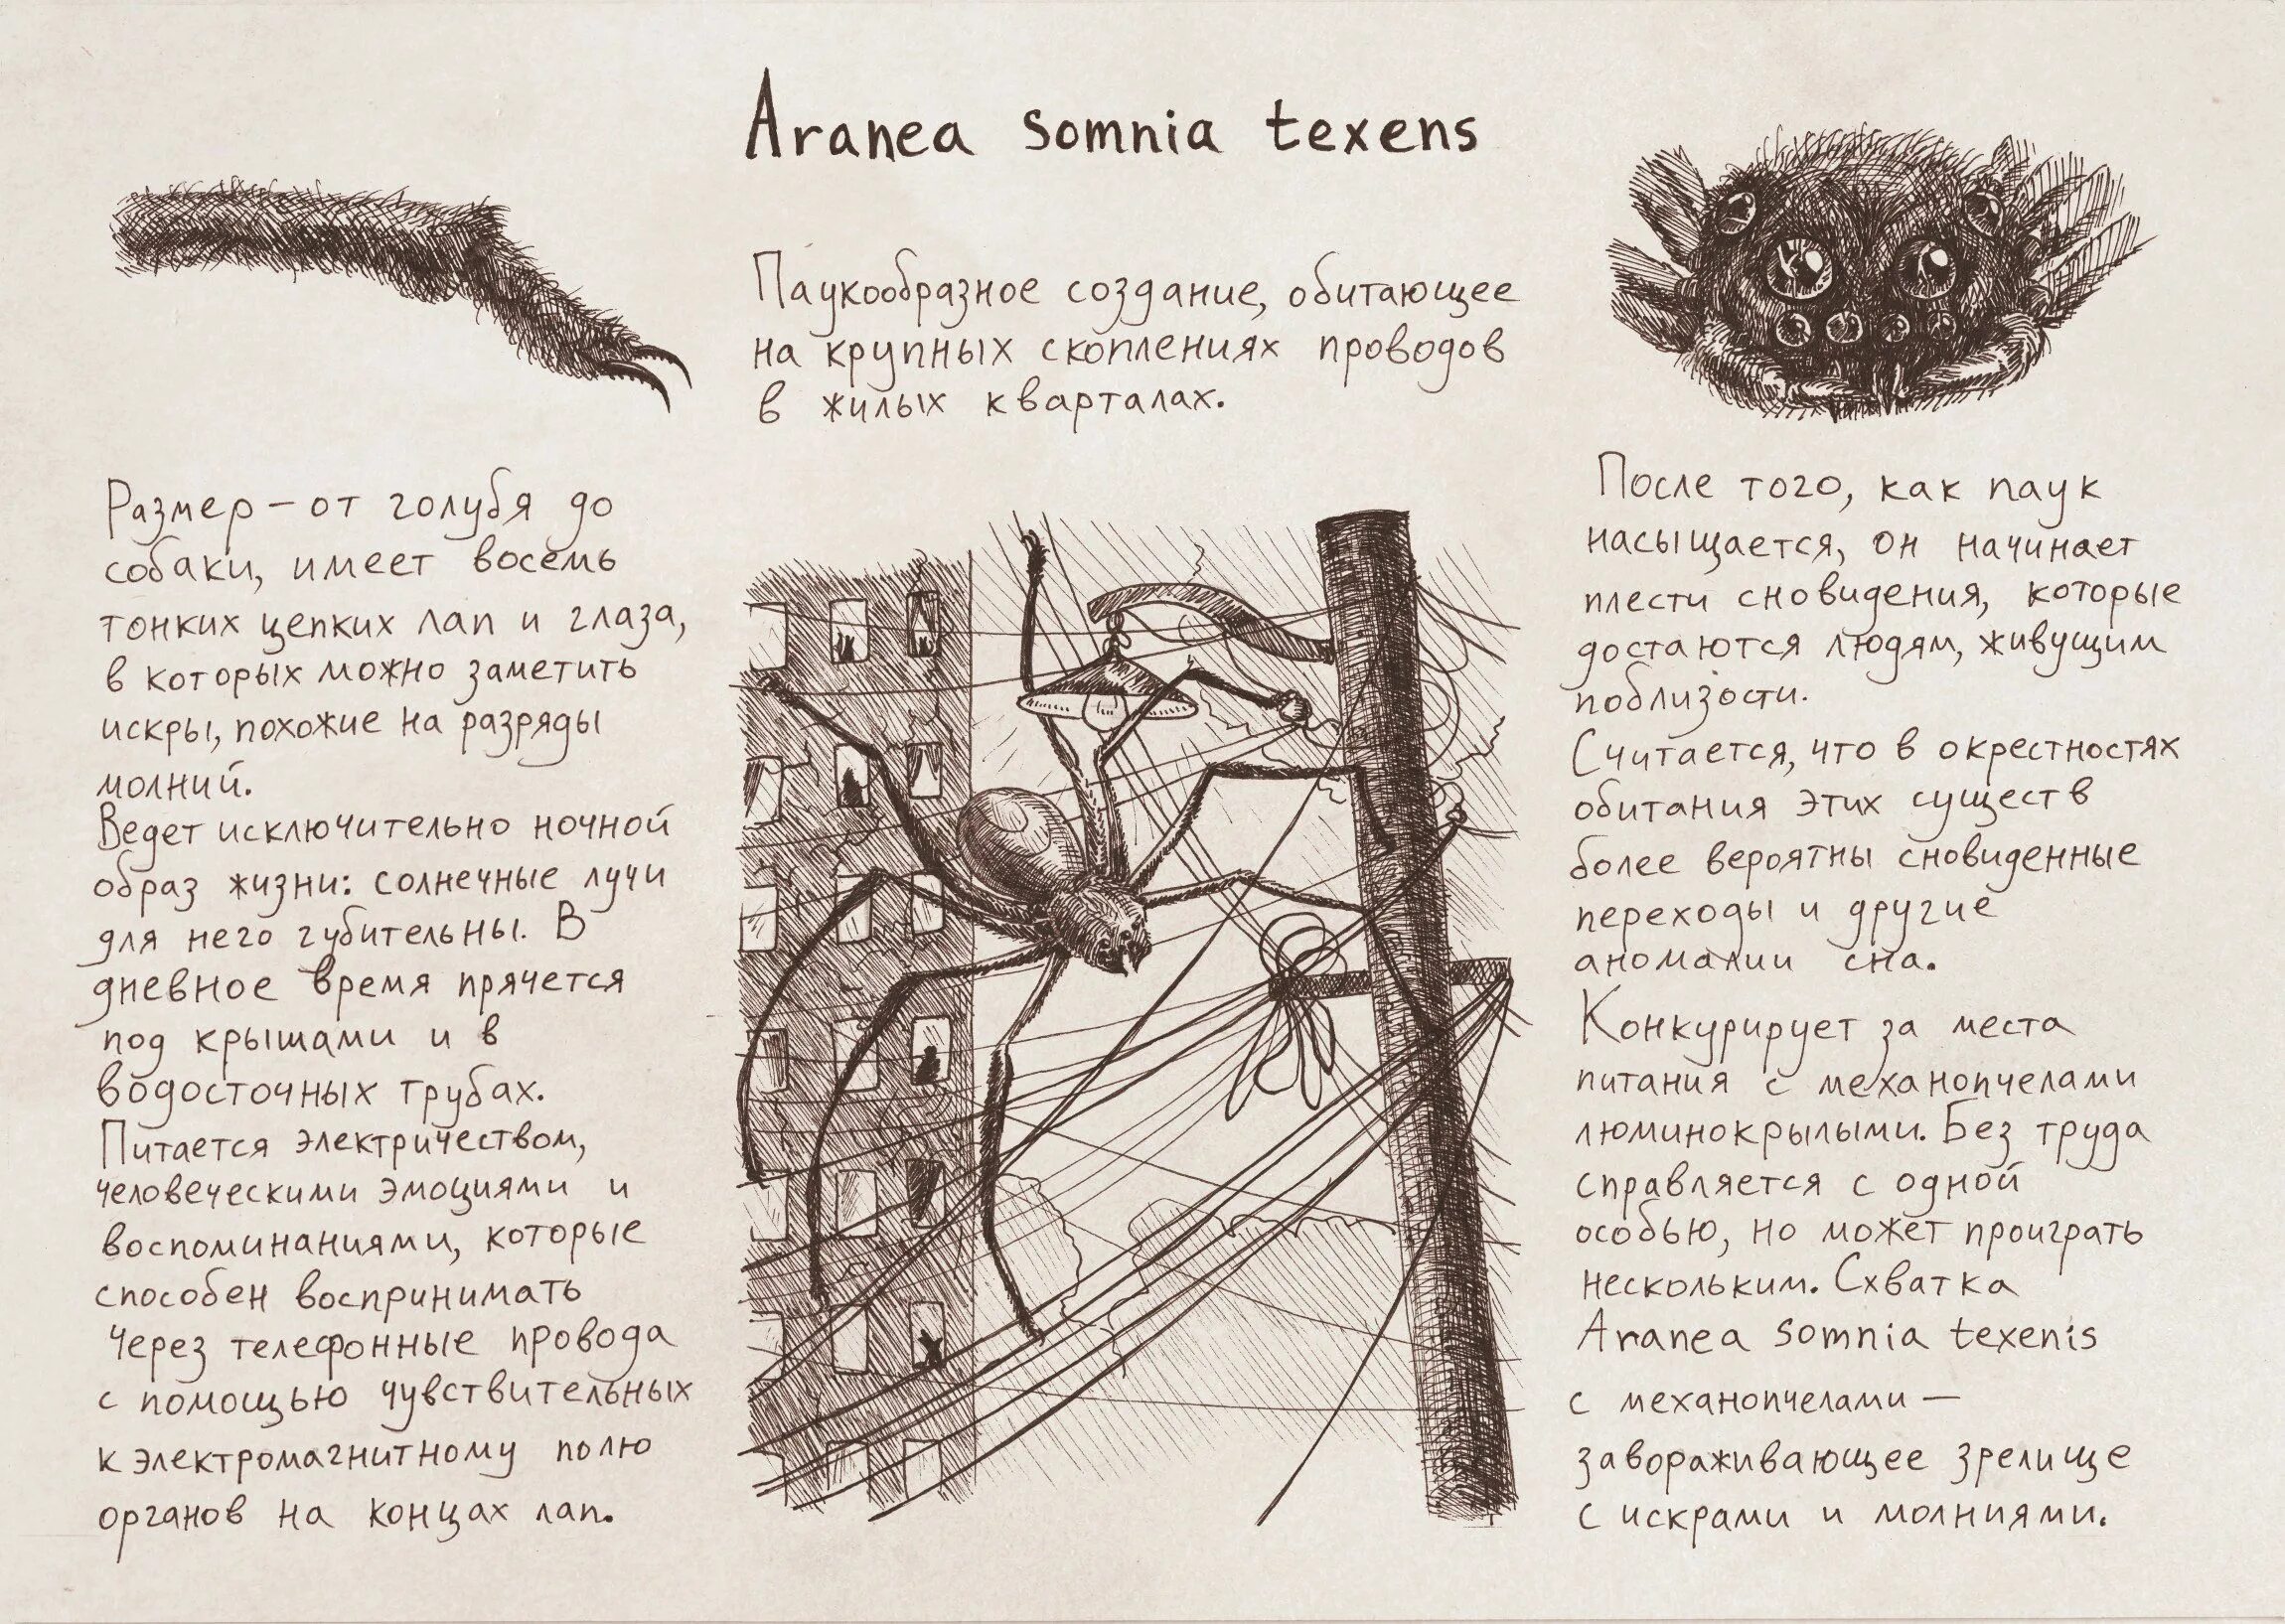 Aranea somnia texens
Паукообразное создание, обитающее
на крупных скоплениях проводов
в жилых кварталах.
Размер – от голубя до
собаки, имеет восемь
тонких цепких лап и глаза,
в которых можно заметить
искры, похожие на разряды
молний.
Ведет исключительно ночной
образ жизни: солнечные лучи
для него губительны. В
дневное время прячется
под крышами и в
водосточных трубах.
Питается электричеством,
человеческими эмоциями и
воспоминаниями, которые
способен воспринимать
через телефонные провода
с помощью чувствительных
к электромагнитному полю
органов на концах лап.
После того, как паук
насыщается, он начинает
плести сновидения, которые
достаются людям, живущим
поблизости.
Считается, что в окрестностях
обитания этих существ
более вероятны сновиденные
переходы и другие
аномалии сна.
Конкурирует за места
питания с механопчелами
люминокрылыми. Без труда
справляется с одной
особью, но может проиграть
нескольким. Схватка
Aranea somnia texenis
с механопчелами –
завораживающее зрелище
с искрами и молниями.